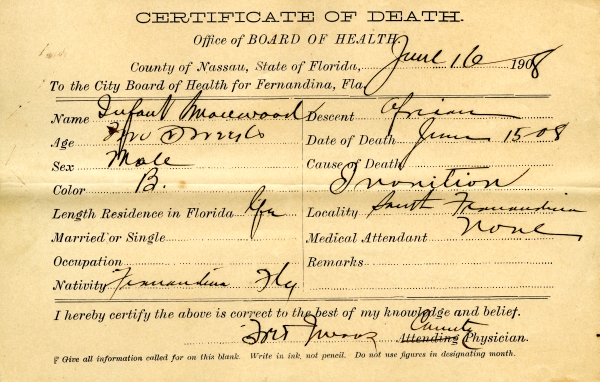 CERTIFICATE OF DEATH.
Office of BOARD OF HEALTH.
County of Nassau, State of Florida, June 16 1908
To the City Board of Health for Fernandina, Fla.
Name Infant Descent African
Age Two Weeks Date of Death June 15 08
Sex Male Cause of Death
Color B. Inonition
Length Residence in Florida Locality South Fernandina
Married or Single Medical Attendant None
Occupation Remarks
Nativity Fernandina Fla
I hereby certify the above is correct to the best of my knowledge and belief.
County
Attending Physician.
Give all information called for on this blank. Write in ink, not pencil. Do not use figures in designating month.